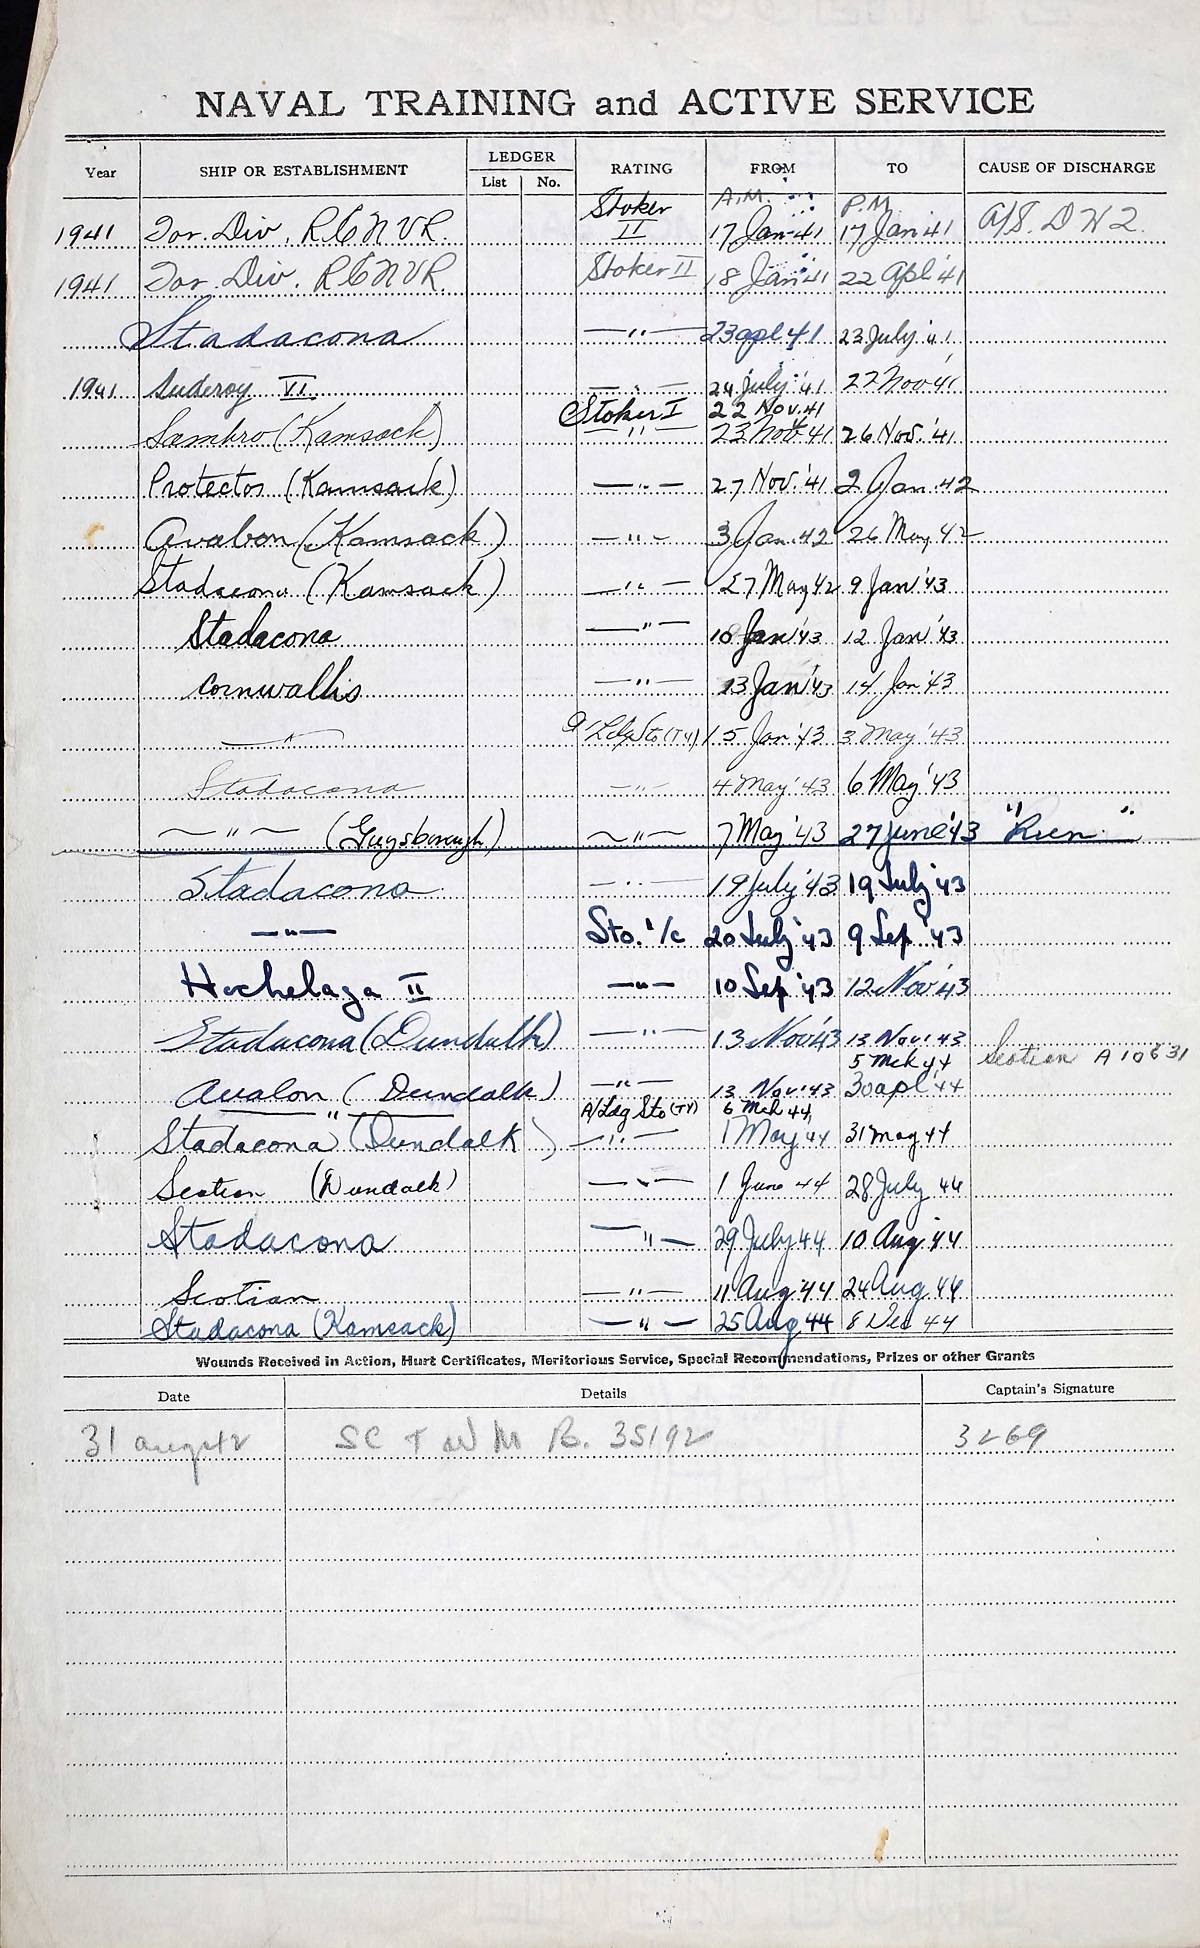 NAVAL TRAINING and ACTIVE SERVICE
Year SHIP OR ESTABLISHMENT LEDGER List No. RATING FROM TO CAUSE OF DISCHARGE
A.M. P.M.
1941 Tor. Div. RCNVR. Stoker II 17 Jan 41 17 Jan 41 A/S.
1941 Tor. Div. RCNVR. Stoker II 18 Jan '41 22 Apl '41
Stadacona —"— 23 apl 41 23 July '41
1941 Suderoy VI. —"— 24 July '41 22 Nov 41
Stoker I 22 Nov. 41
Sambro (Kamsack) —"— 23 Nov 41 26 Nov. '41
Protector (Kamsack) —"— 27 Nov. '41 2 Jan 42
Avalon (Kamsack) —"— 3 Jan. 42 26 May 42
Stadacona (Kamsack) —"— 27 May 42 9 Jan '43
Stadacona —"— 10 Jan '43 12 Jan '43
Cornwallis —"— 13 Jan '43 14 Jan '43
—"— A/Ldg Sto (TY) 15 Jan '43 3 May '43
Stadacona —"— 4 May '43 6 May '43
—"— (Guysborough) —"— 7 May '43 27 June '43 "Run"
Stadacona —"— 19 July '43 19 July '43
—"— Sto. 1/c 20 July '43 9 Sep '43
Hochelaga II —"— 10 Sep '43 12 Nov '43
Stadacona (Dundalk) —"— 13 Nov '43 13 Nov '43
5 Mch 44 Scotian A 10631
Avalon (Dundalk) —"— 13 Nov '43 30 apl '44
—"— A/Ldg Sto (TY) 6 Mch 44
Stadacona (Dundalk) —"— 1 May 44 31 May 44
Scotian (Dundalk) —"— 1 June 44 28 July 44
Stadacona —"— 29 July 44 10 Aug '44
Scotian —"— 11 Aug '44 24 Aug 44
Stadacona (Kamsack) —"— 25 Aug 44 8 Dec 44
Wounds Received in Action, Hurt Certificates, Meritorious Service, Special Recommendations, Prizes or other Grants
Date Details Captain's Signature
31 aug 42 35192 3269